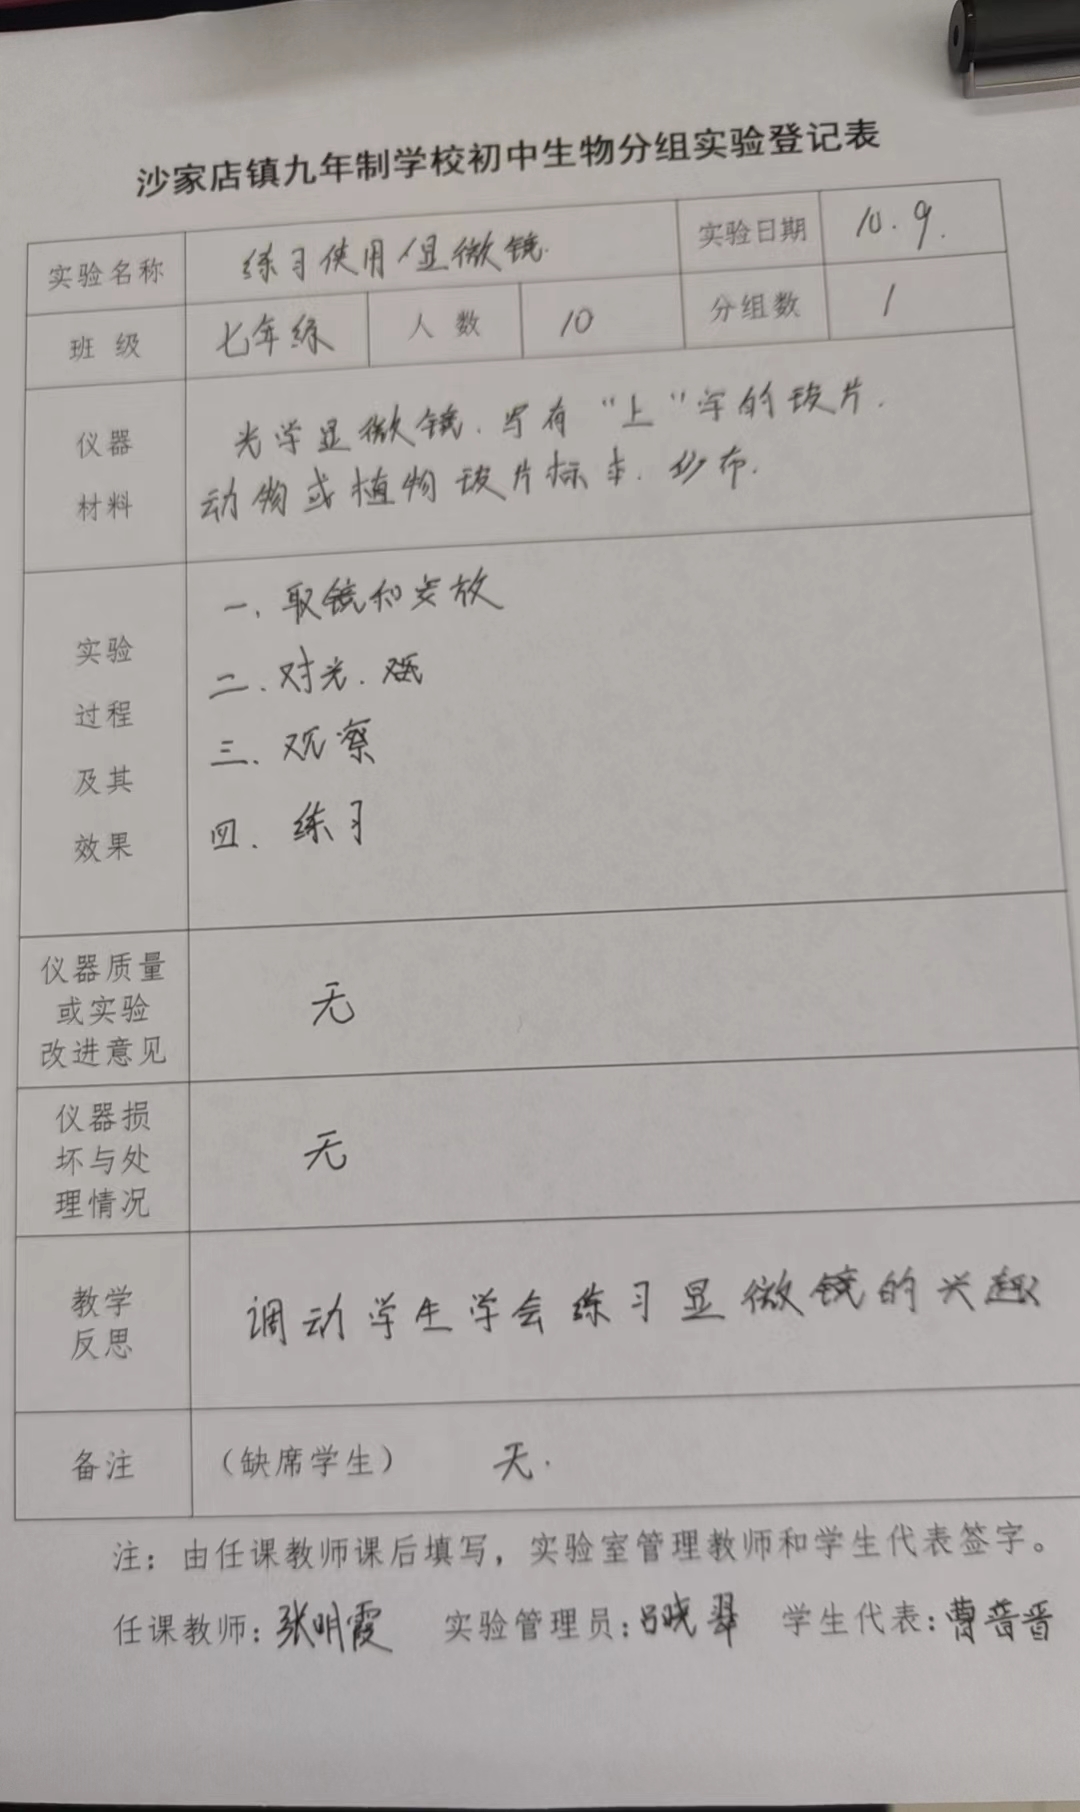 沙家店镇九年制学校初中生物分组实验登记表
实验名称 练习使用显微镜. 实验日期 10.9.
班级 七年级 人数 10 分组数 1
仪器材料 光学显微镜.写有"上"字的玻片.
动物或植物玻片标本.纱布.
实验过程及其效果
一、取镜和安放
二、对光.
三、观察
四、练习
仪器质量或实验改进意见 无
仪器损坏与处理情况 无
教学反思 调动学生学会练习显微镜的兴趣
备注 (缺席学生) 无.
注：由任课教师课后填写，实验室管理教师和学生代表签字。
任课教师：张明霞 实验管理员：吕晓翠 学生代表：曹